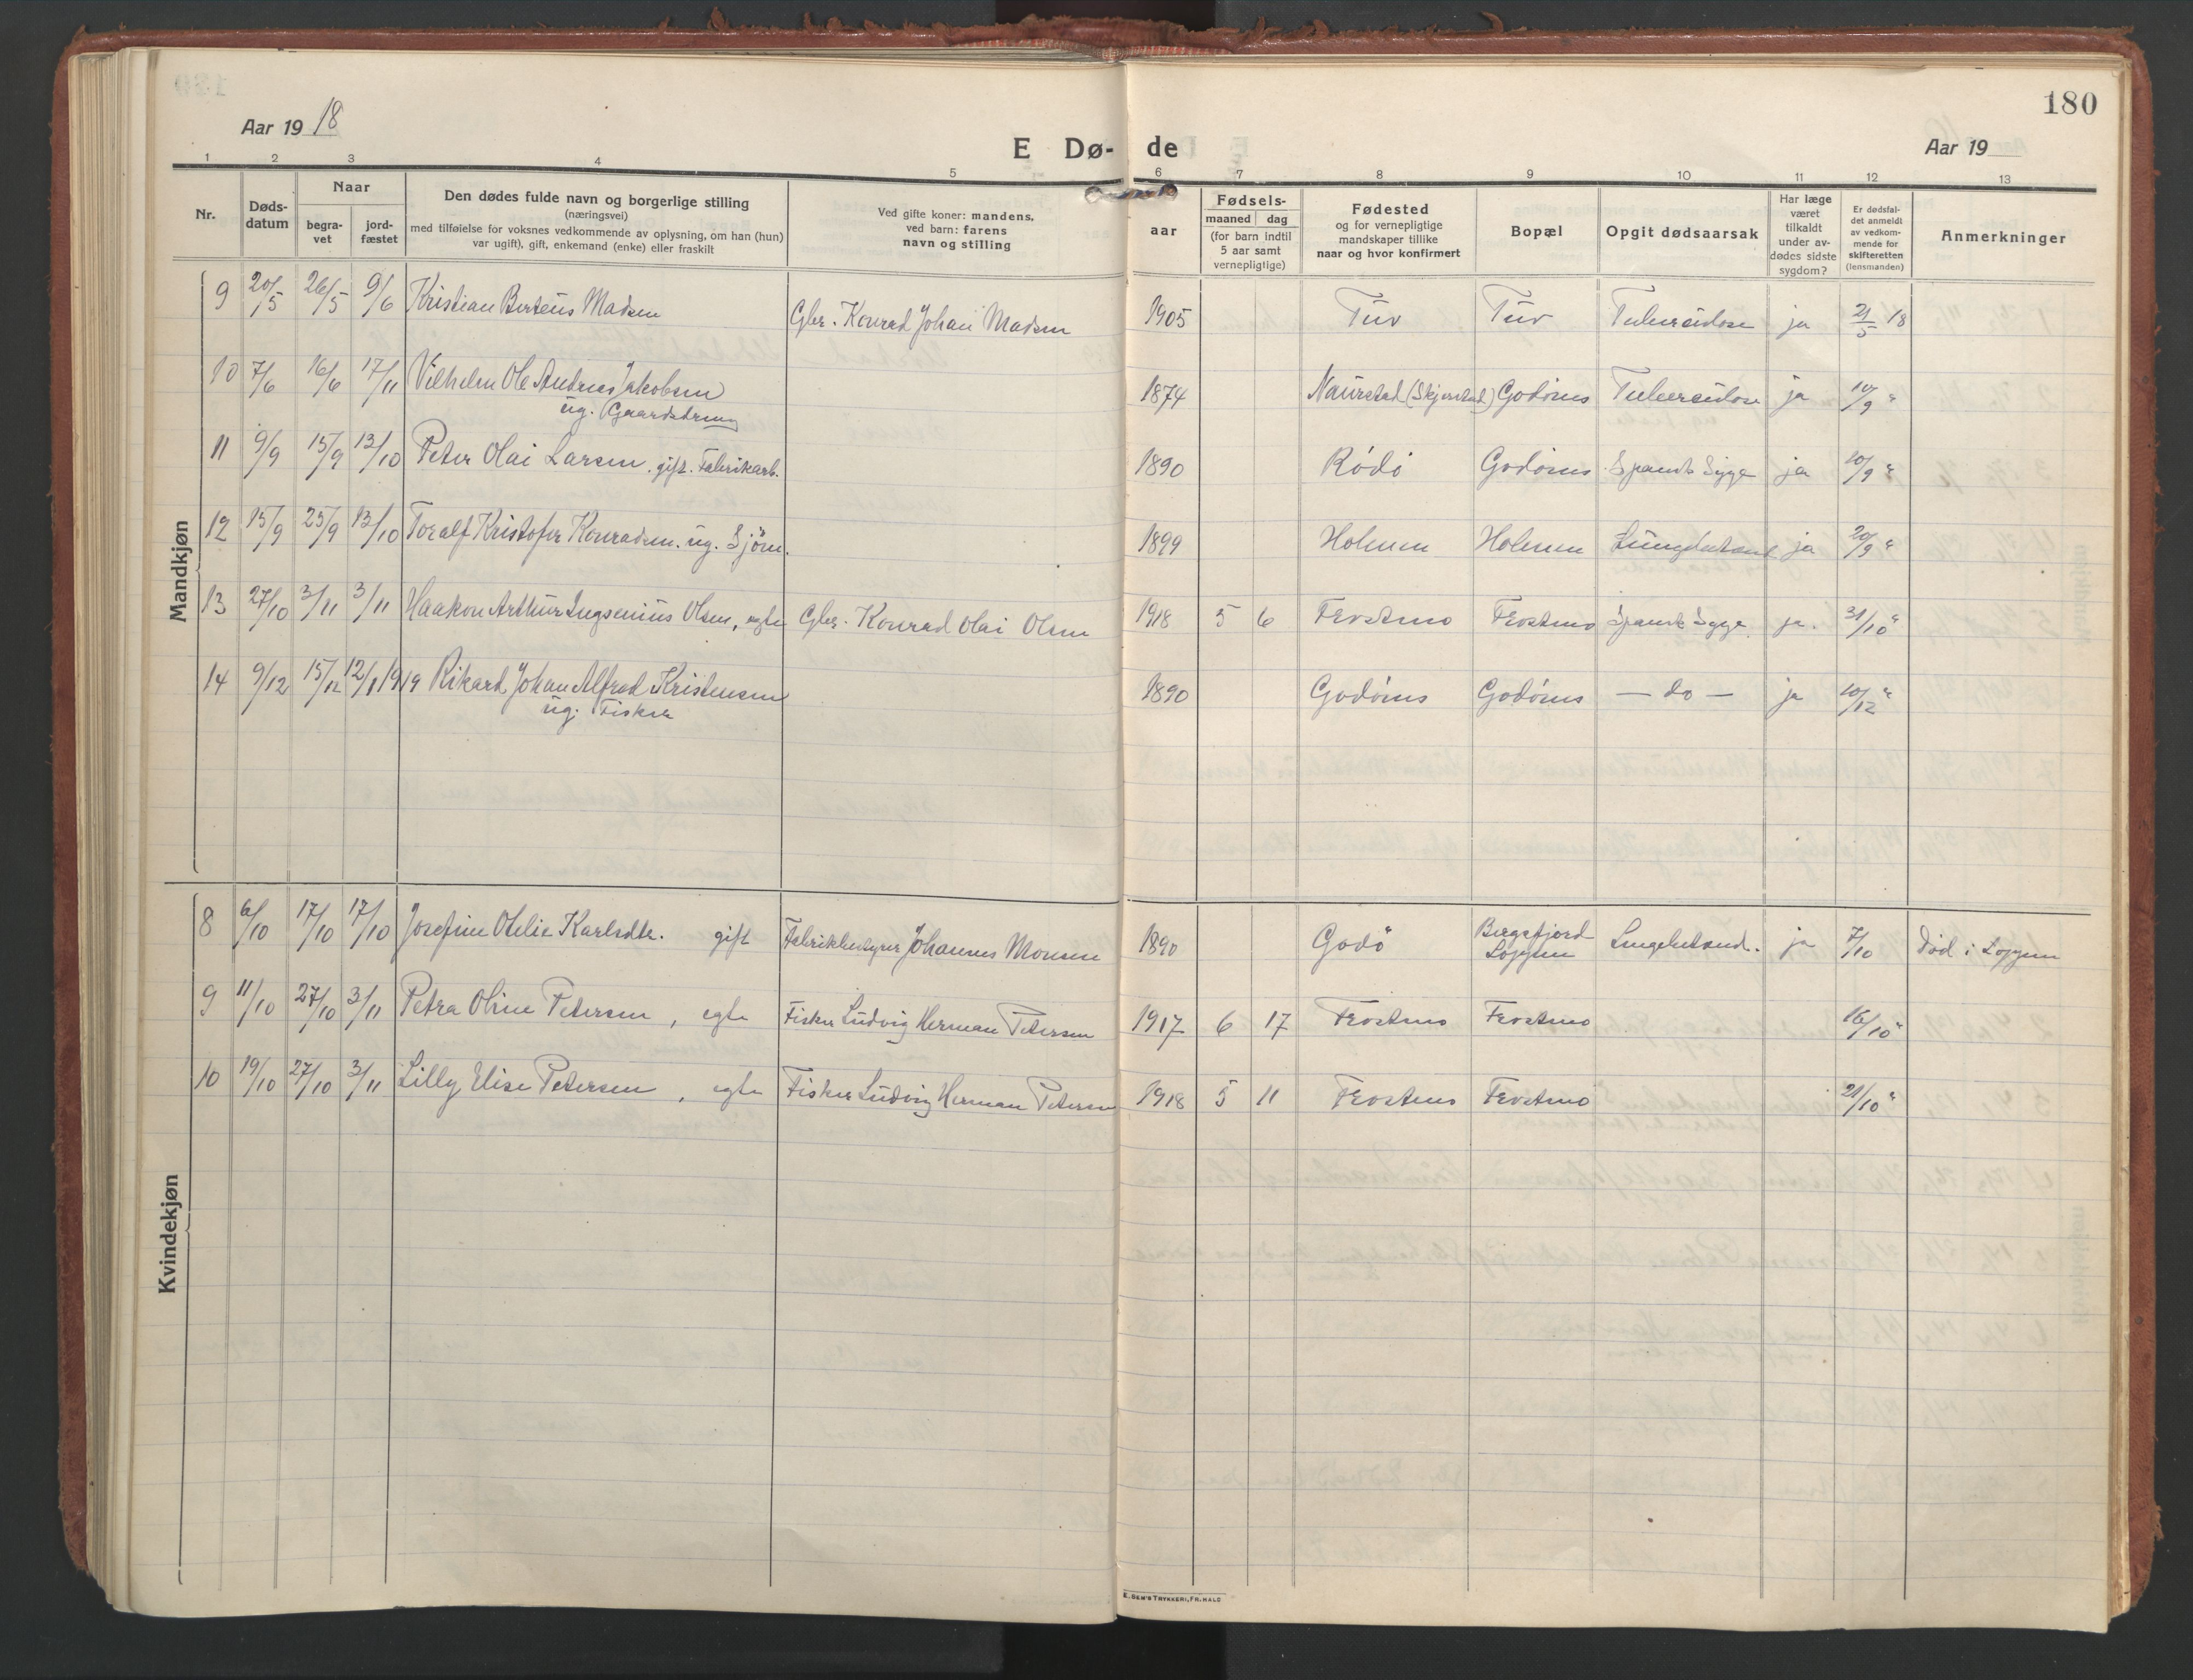 180
Aar 19 18
E Dø- de
Aar 19
1 2 3 4 5 6 7 8 9 10 11 12 13
Nr.
Døds-
datum
Naar
begra-
vet
jord-
fæstet
Den dødes fulde navn og borgerlige stilling
(næringsvei)
med tilføielse for voksnes vedkommende av oplysning, om han (hun)
var ugift), gift, enkemand (enke) eller fraskilt
Ved gifte koner: mandens,
ved barn: farens
navn og stilling
aar
Fødsels-
maaned dag
(for barn indtil
5 aar samt
vernepligtige)
Fødested
og for vernepligtige
mandskaper tillike
naar og hvor konfirmert
Bopæl
Opgit dødsaarsak
Har læge
været
tilkaldt
under av-
dødes sidste
sygdom?
Er dødsfal-
det anmeldt
av vedkom-
mende for
skifteretten
(lensmanden)
Anmerkninger
Mandkjøn
9 20/5 26/5 9/6 Kristian Berteus Madsen Gbr. Konrad Johan Madsen 1905 Tuv Tuv Tuberculose ja 21/5 18
10 7/6 16/6 17/11 Vilhelm Ole Andreas Jakobsen 1874 Naurstad (Skjerstad) Godönes Tuberculose ja 10/9 "
ug. Gaardsdreng
11 9/9 15/9 13/10 Peter Olai Larsen. gift. Fabrikarb. 1890 Rödö Godönes Spansk Syge ja 10/9 "
12 15/9 25/9 13/10 Toralf Kristofer Konradsen. ug. Sjöm. 1899 Holmen Holmen Lungebetænd ja 20/9 "
13 27/10 3/11 3/11 Haakon Arthur Ingenius Olsen, egte Gbr. Konrad Olai Olsen 1918 5 6 Frostmo Frostmo Spansk Syge ja. 31/10 "
14 9/12 15/12 12/1 1919 Rikard Johan Alfred Kristensen 1890 Godönes Godönes — do — ja 10/12 "
ug. Fisker
Kvindekjøn
8 6/10 17/10 17/10 Josefine Otelie Karlsdtr. gift Fabrikbestyrer Johannes Monsen 1890 Godö Bergsfjord Loppen Lungebetænd. ja 7/10 Död i Loppen
9 11/10 27/10 3/11 Petra Oline Petersen, egte Fisker Ludvig Herman Petersen 1917 6 17 Frostmo Frostmo 16/10 "
10 19/10 27/10 3/11 Lilly Elise Petersen, egte Fisker Ludvig Herman Petersen 1918 5 11 Frostmo Frostmo 21/10 "
E. SEM'S TRYKKERI, FR.HALD